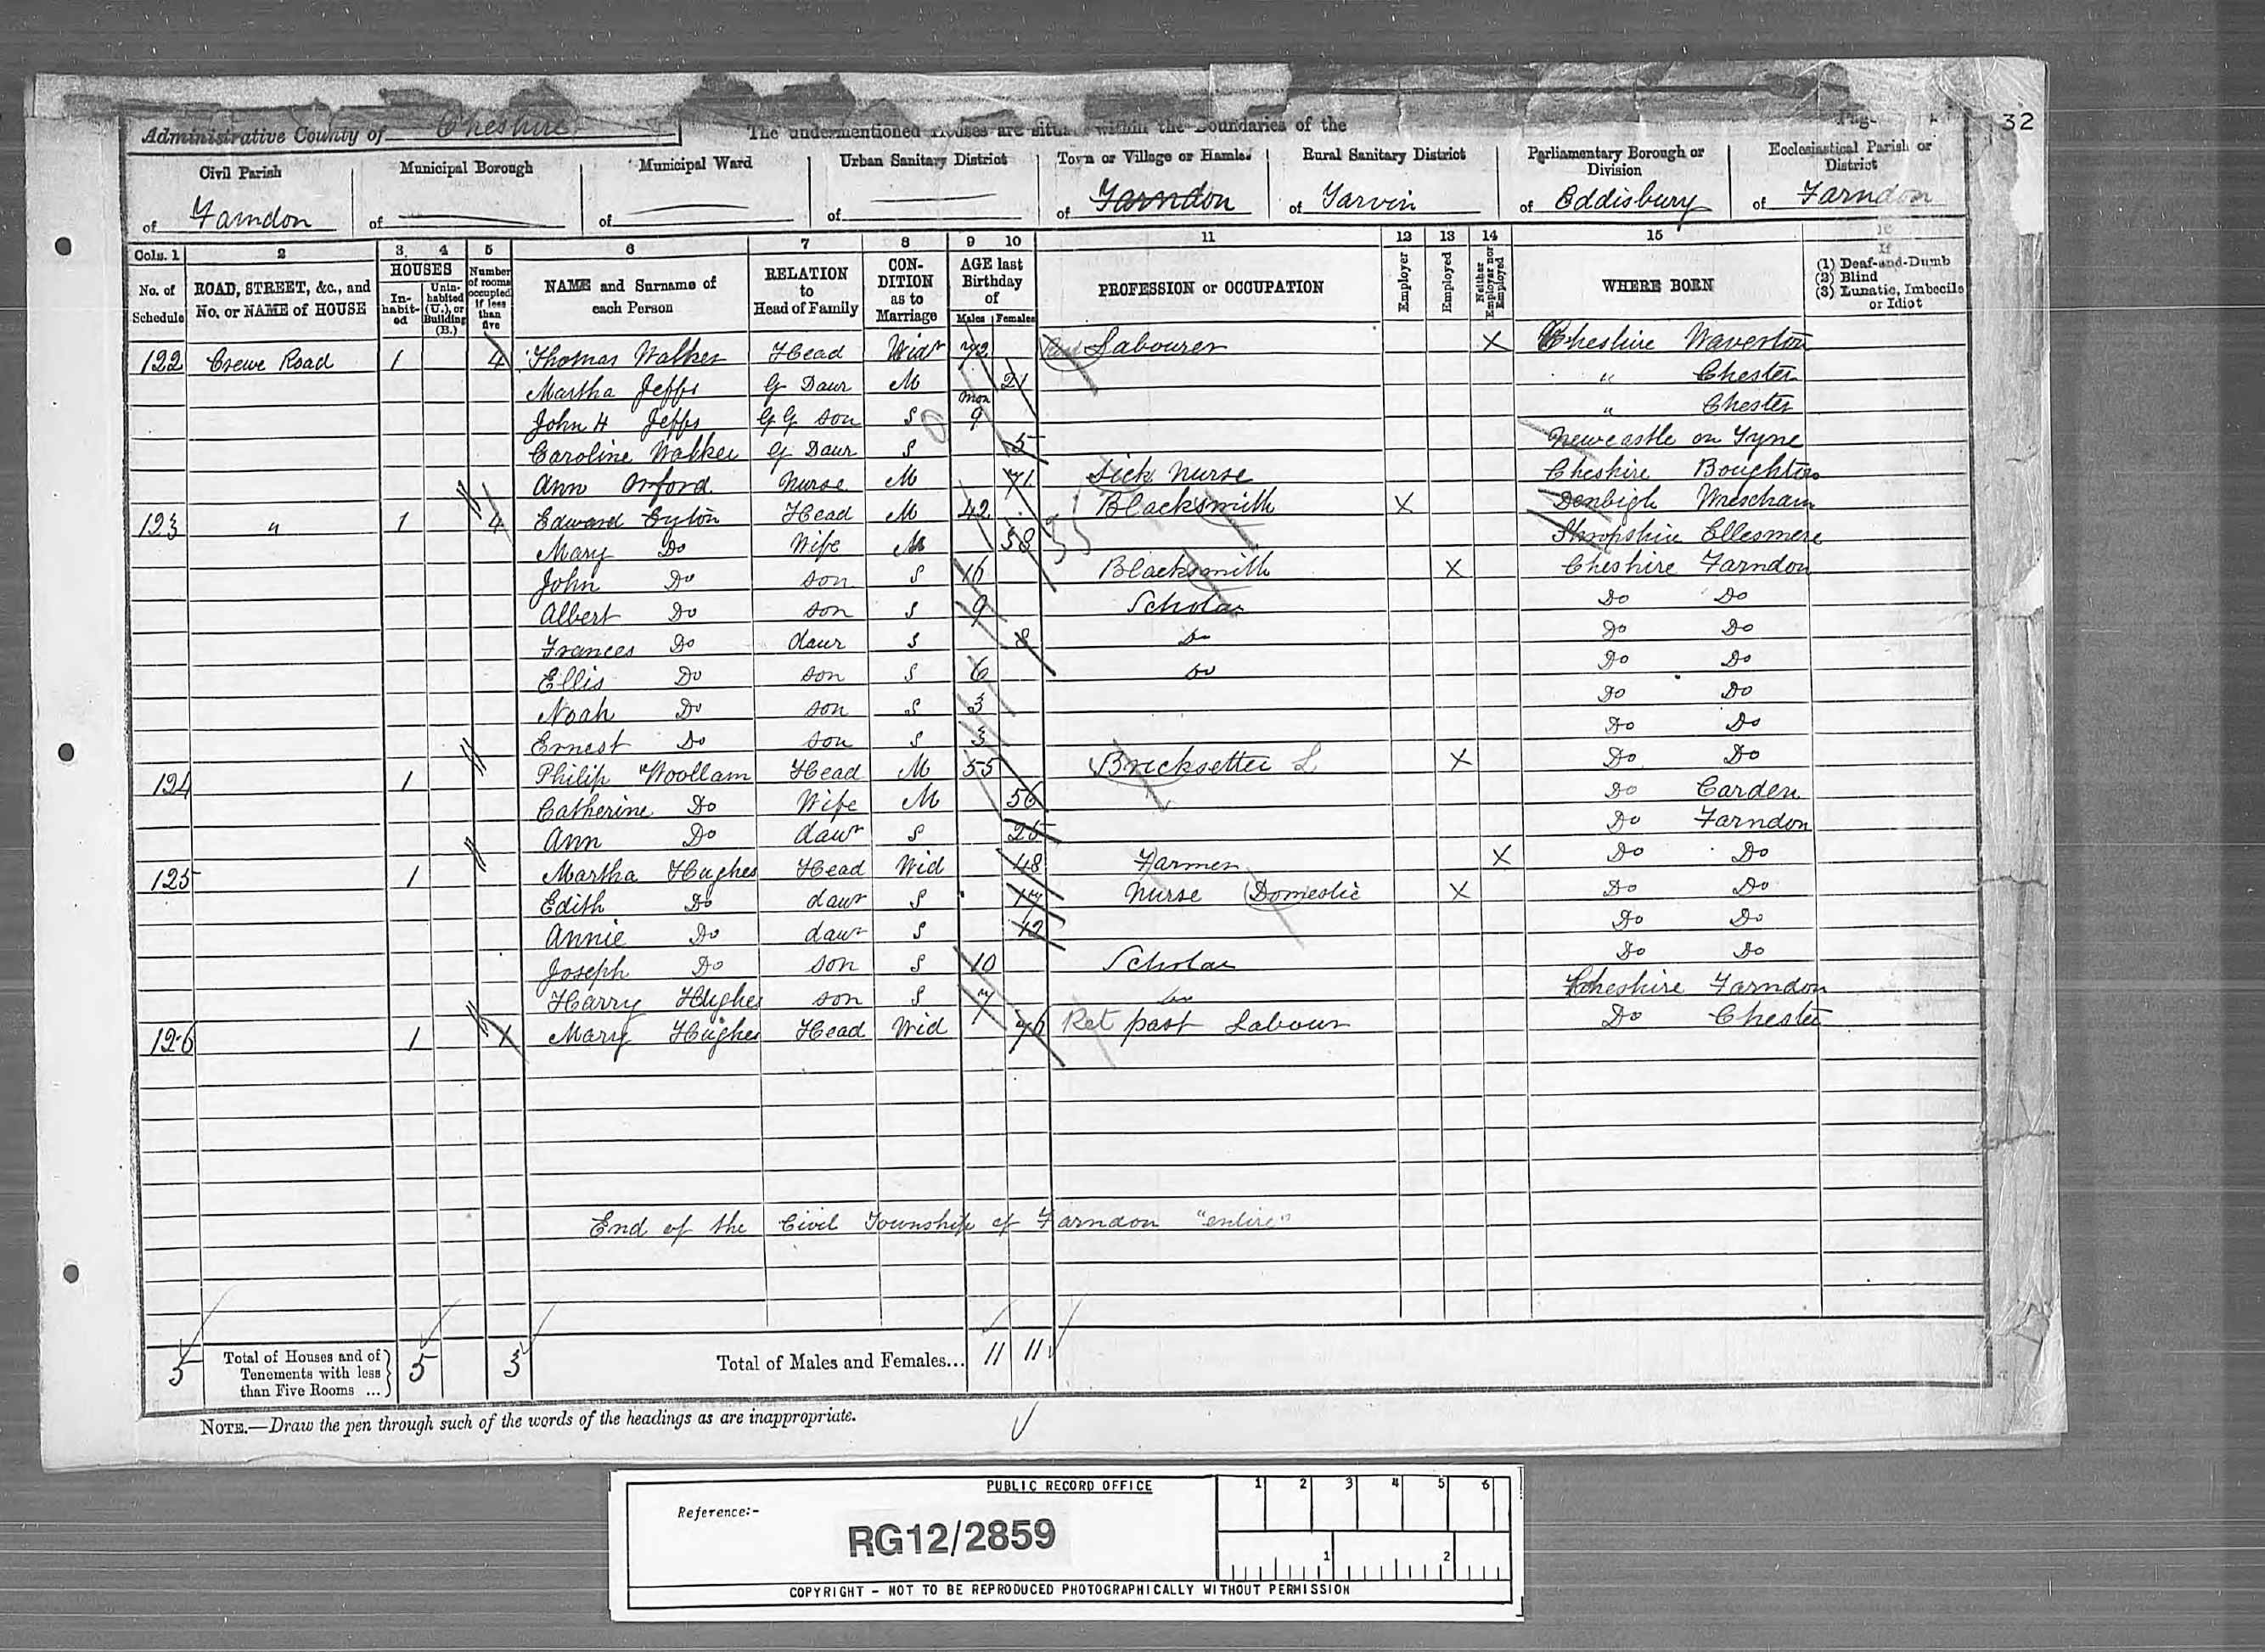 32
Administrative County of Cheshire
The undermentioned Houses are situate within the Boundaries of the
Civil Parish
of Farndon
Municipal Borough
of
Municipal Ward
of
Urban Sanitary District
of
Town or Village or Hamlet
of Farndon
Rural Sanitary District
of Tarvin
Parliamentary Borough or Division
of Eddisbury
Ecclesiastical Parish or District
of Farndon
Cols. 1 2 3 4 5 6 7 8 9 10 11 12 13 14 15 16
No. of Schedule
ROAD, STREET, &c., and No. or NAME of HOUSE
HOUSES
In-habit-ed
Unin-habited (U.), or Building (B.)
Number of rooms occupied if less than five
NAME and Surname of each Person
RELATION to Head of Family
CON-DITION as to Marriage
AGE last Birthday of
Males Females
PROFESSION or OCCUPATION
Employer
Employed
Neither Employer nor Employed
WHERE BORN
If
(1) Deaf-and-Dumb
(2) Blind
(3) Lunatic, Imbecile or Idiot
122 Crewe Road 1 4 Thomas Walker Head Widr 72 Labourer X Cheshire Waverton
Martha Jeffs G Daur M 21 " Chester
John H Jeffs G G son S 9 mon " Chester
Caroline Walker G Daur S 5 Newcastle on Tyne
Ann Orford Nurse M 71 Sick Nurse Cheshire Boughton
123 " 1 4 Edward Eyton Head M 42 Blacksmith X Denbigh Wrexham
Mary Do Wife M 38 Shropshire Ellesmere
John Do son S 16 Blacksmith X Cheshire Farndon
Albert Do son S 9 Scholar Do Do
Frances Do daur S 8 Do Do Do
Ellis Do son S 6 Do Do Do
Noah Do son S 3 Do Do
Ernest Do son S 3 Do Do
124 1 Philip Woollam Head M 55 Bricksetter L X Do Do
Catherine Do Wife M 56 Do Carden
Ann Do daur S 25 Do Farndon
125 1 Martha Hughes Head Wid 48 Farmer X Do Do
Edith Do daur S 17 Nurse Domestic X Do Do
Annie Do daur S 12 Do Do
Joseph Do son S 10 Scholar Do Do
Harry Hughes son S 7 Do Cheshire Farndon
126 1 1 Mary Hughes Head Wid 76 Ret past Labour Do Chester
End of the Civil Township of Farndon "entire"
5 Total of Houses and of Tenements with less than Five Rooms ... 5 3 Total of Males and Females... 11 11
NOTE.—Draw the pen through such of the words of the headings as are inappropriate.
PUBLIC RECORD OFFICE
1 2 3 4 5 6
Reference:-
RG12/2859
1 2
COPYRIGHT - NOT TO BE REPRODUCED PHOTOGRAPHICALLY WITHOUT PERMISSION